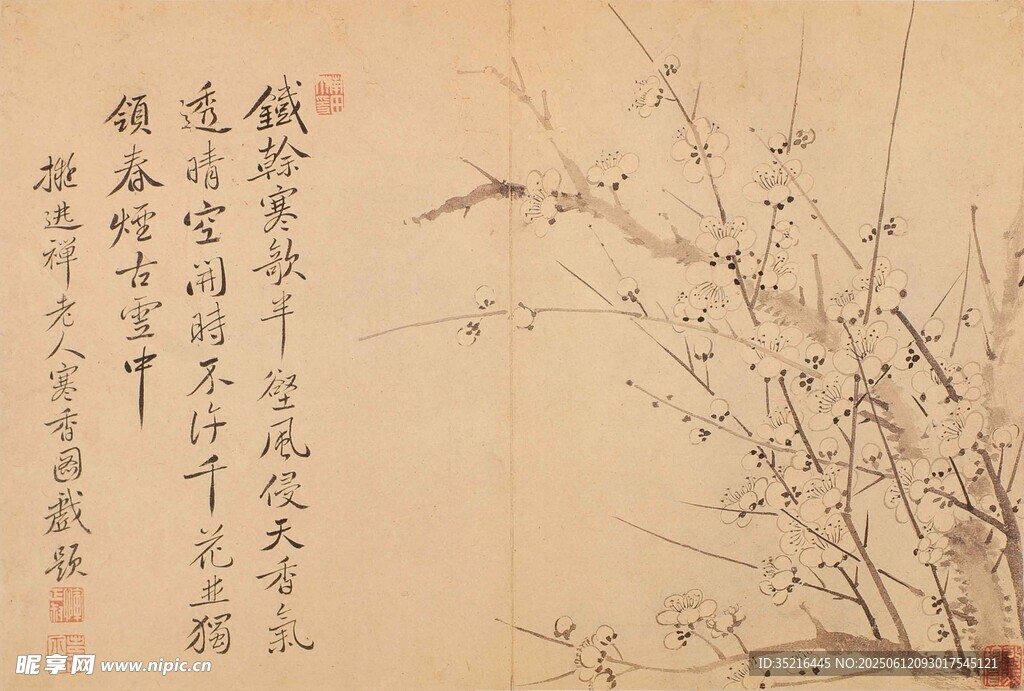 鐵榦寒欹半壑風侵天香氣
透晴空開時不許千花並獨
領春煙古雪中
擬逃禪老人寒香圖戲題
昵享网 www.nipic.cn
ID:35216445 NO:20250612093017545121